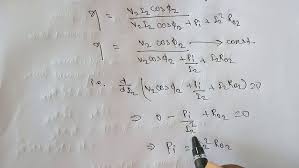 η = V₂ I₂ cosϕ₂ / (V₂ I₂ cosϕ₂ + Pᵢ + I₂² R₀₂)
η = V₂ cosϕ₂ / (V₂ cosϕ₂ + Pᵢ/I₂ + I₂ R₀₂) → const.
i.e. d/dI₂ (V₂ cosϕ₂ + Pᵢ/I₂ + I₂ R₀₂) = 0
⇒ 0 - Pᵢ/I₂² + R₀₂ = 0
⇒ Pᵢ = I₂² R₀₂